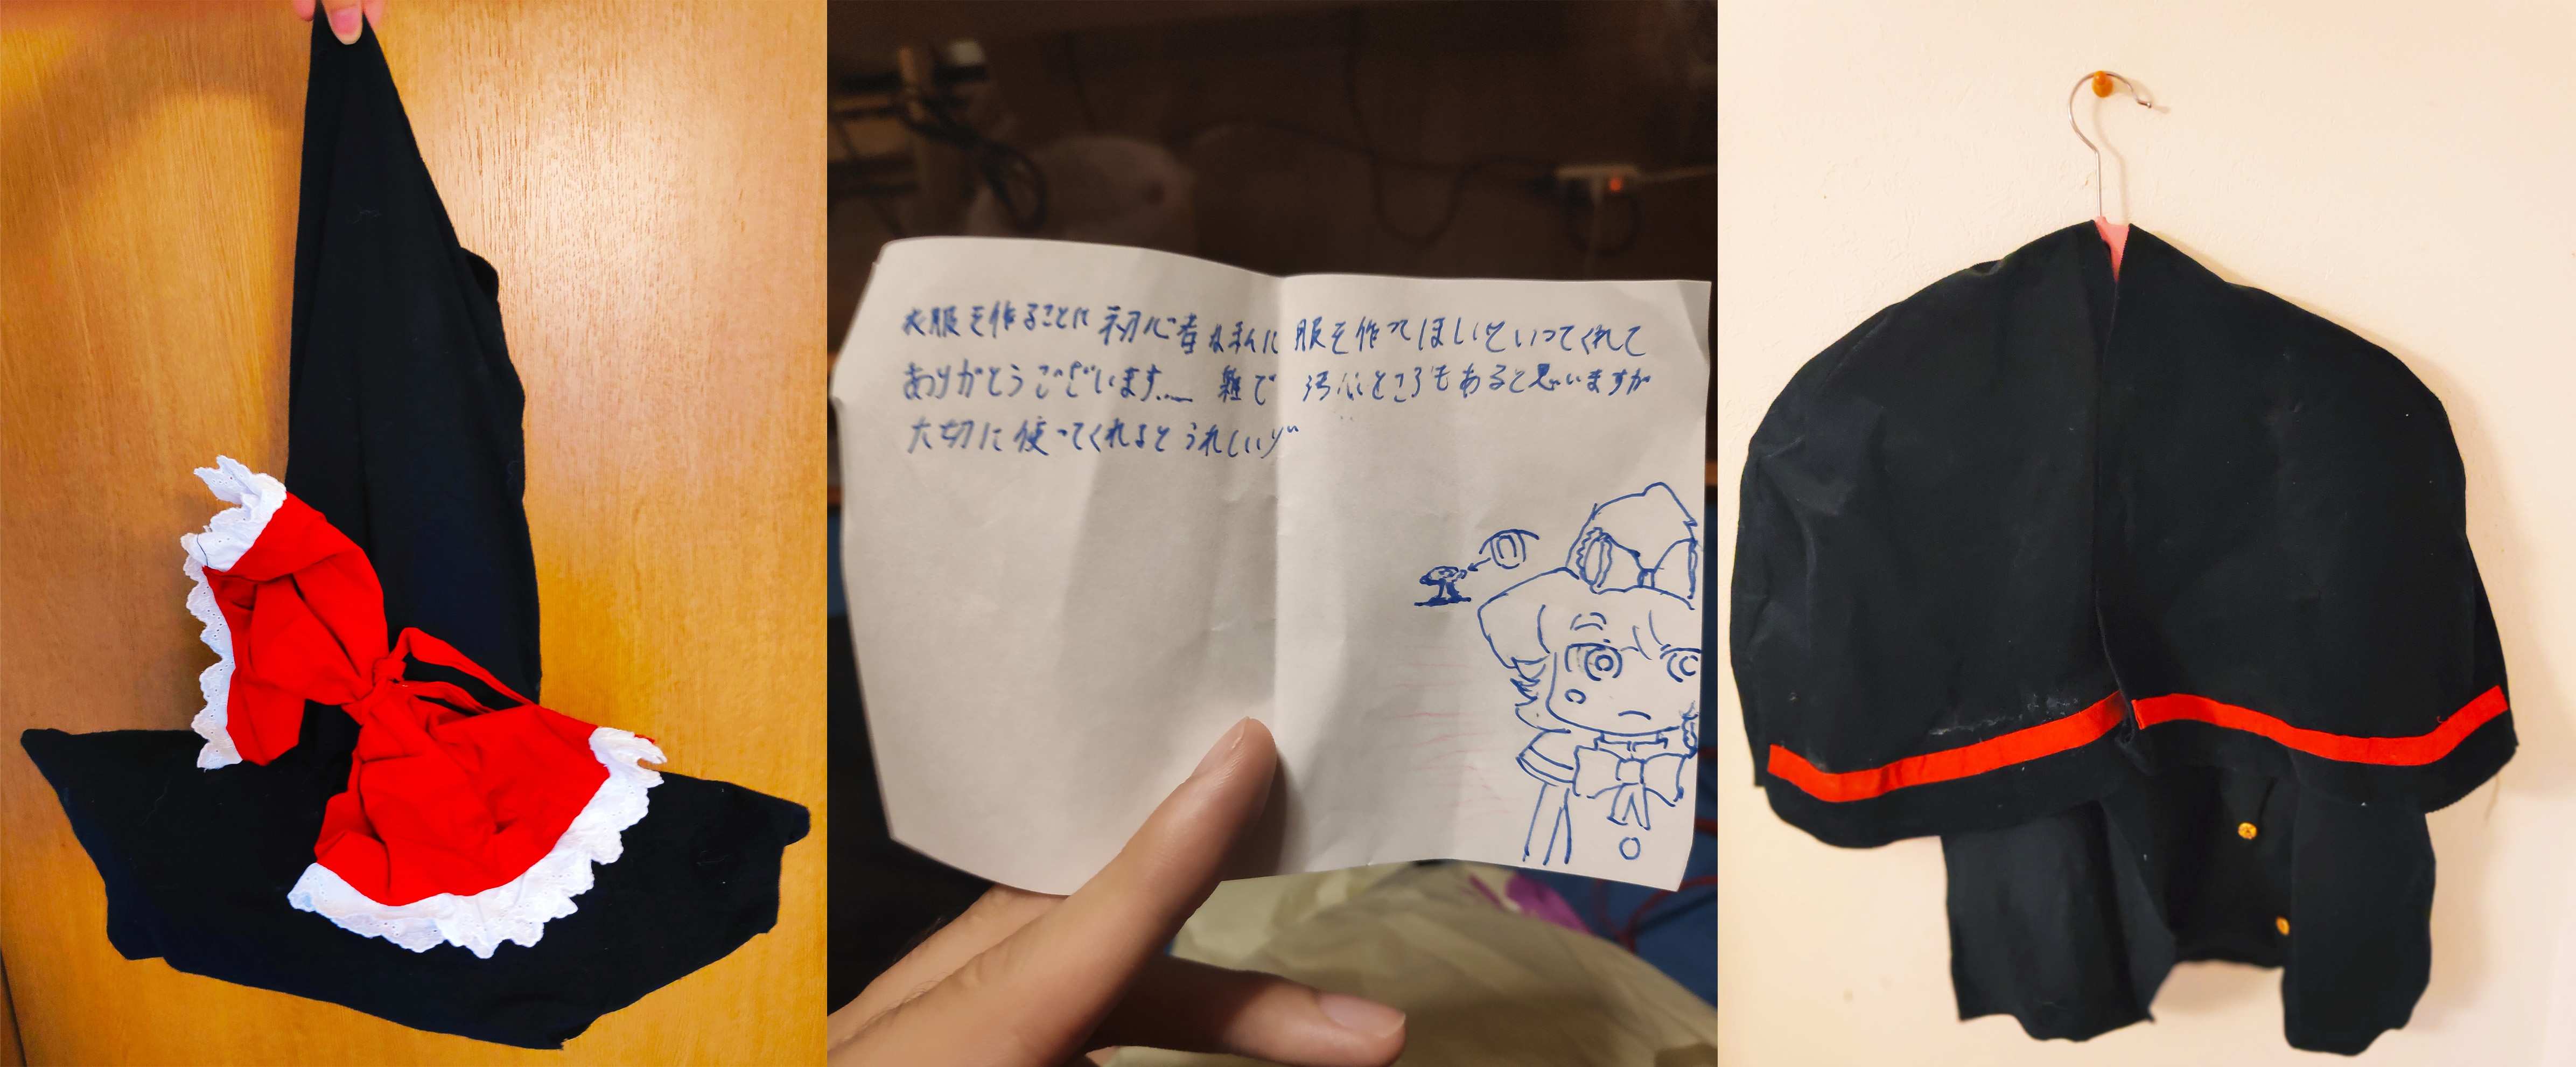 衣服を作ることに初心者なまんに服を作ってほしいといってくれて
ありがとうございます... 雑で 汚いところもあると思いますが
大切に使ってくれるとうれしいゾ